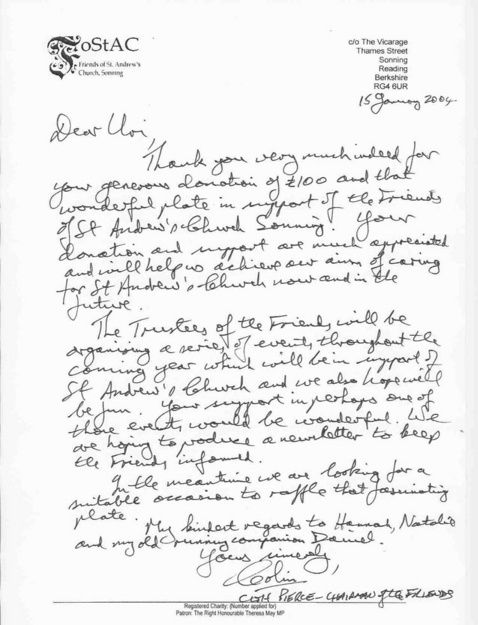 FoStAC
Friends of St. Andrew's
Church, Sonning
c/o The Vicarage
Thames Street
Sonning
Reading
Berkshire
RG4 6UR
15 January 2004
Dear Uri,
Thank you very much indeed for
your generous donation of £100 and that
wonderful plate in support of the Friends
of St Andrew's Church Sonning. Your
donation and support are much appreciated
and will help us achieve our aim of caring
for St Andrew's Church now and in the
future.
The Trustees of the Friends will be
organising a series of events throughout the
coming year which will be in support of
St Andrew's Church and we also hope will
be fun. Your support in perhaps one of
those events would be wonderful. We
are hoping to produce a newsletter to keep
the Friends informed.
In the meantime we are looking for a
suitable occasion to raffle that fascinating
plate.
My kindest regards to Hannah, Natalie
and my old running companion Daniel.
Yours sincerely,
Colin
COLIN PIERCE - CHAIRMAN of the FRIENDS
Registered Charity: (Number applied for)
Patron: The Right Honourable Theresa May MP